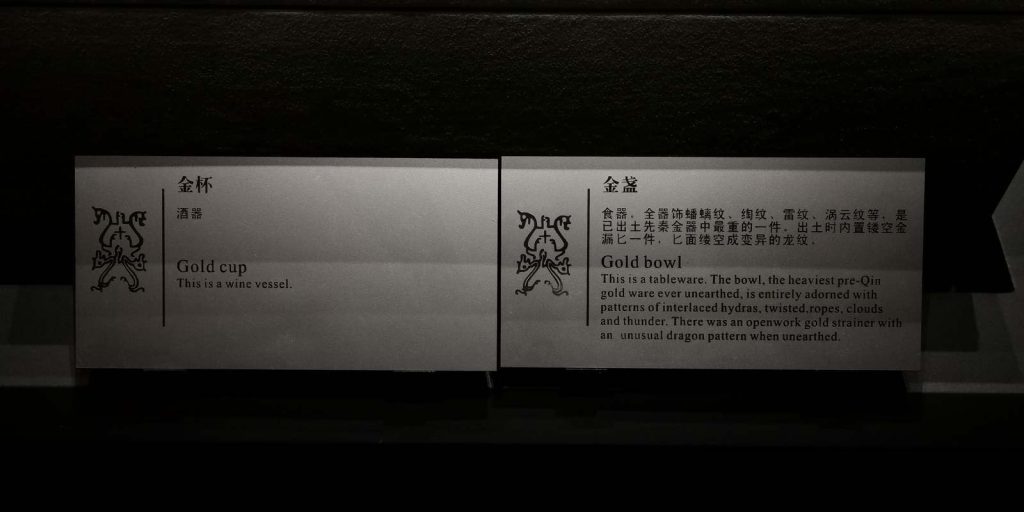 金杯
酒器
Gold cup
This is a wine vessel.
金盏
食器，全器饰蟠螭纹、绹纹、雷纹、涡云纹等，是
已出土先秦金器中最重的一件，出土时内置镂空金
漏匕一件，匕面镂空成变异的龙纹。
Gold bowl
This is a tableware. The bowl, the heaviest pre-Qin
gold ware ever unearthed, is entirely adorned with
patterns of interlaced hydras, twisted,ropes, clouds
and thunder. There was an openwork gold strainer with
an unusual dragon pattern when unearthed.